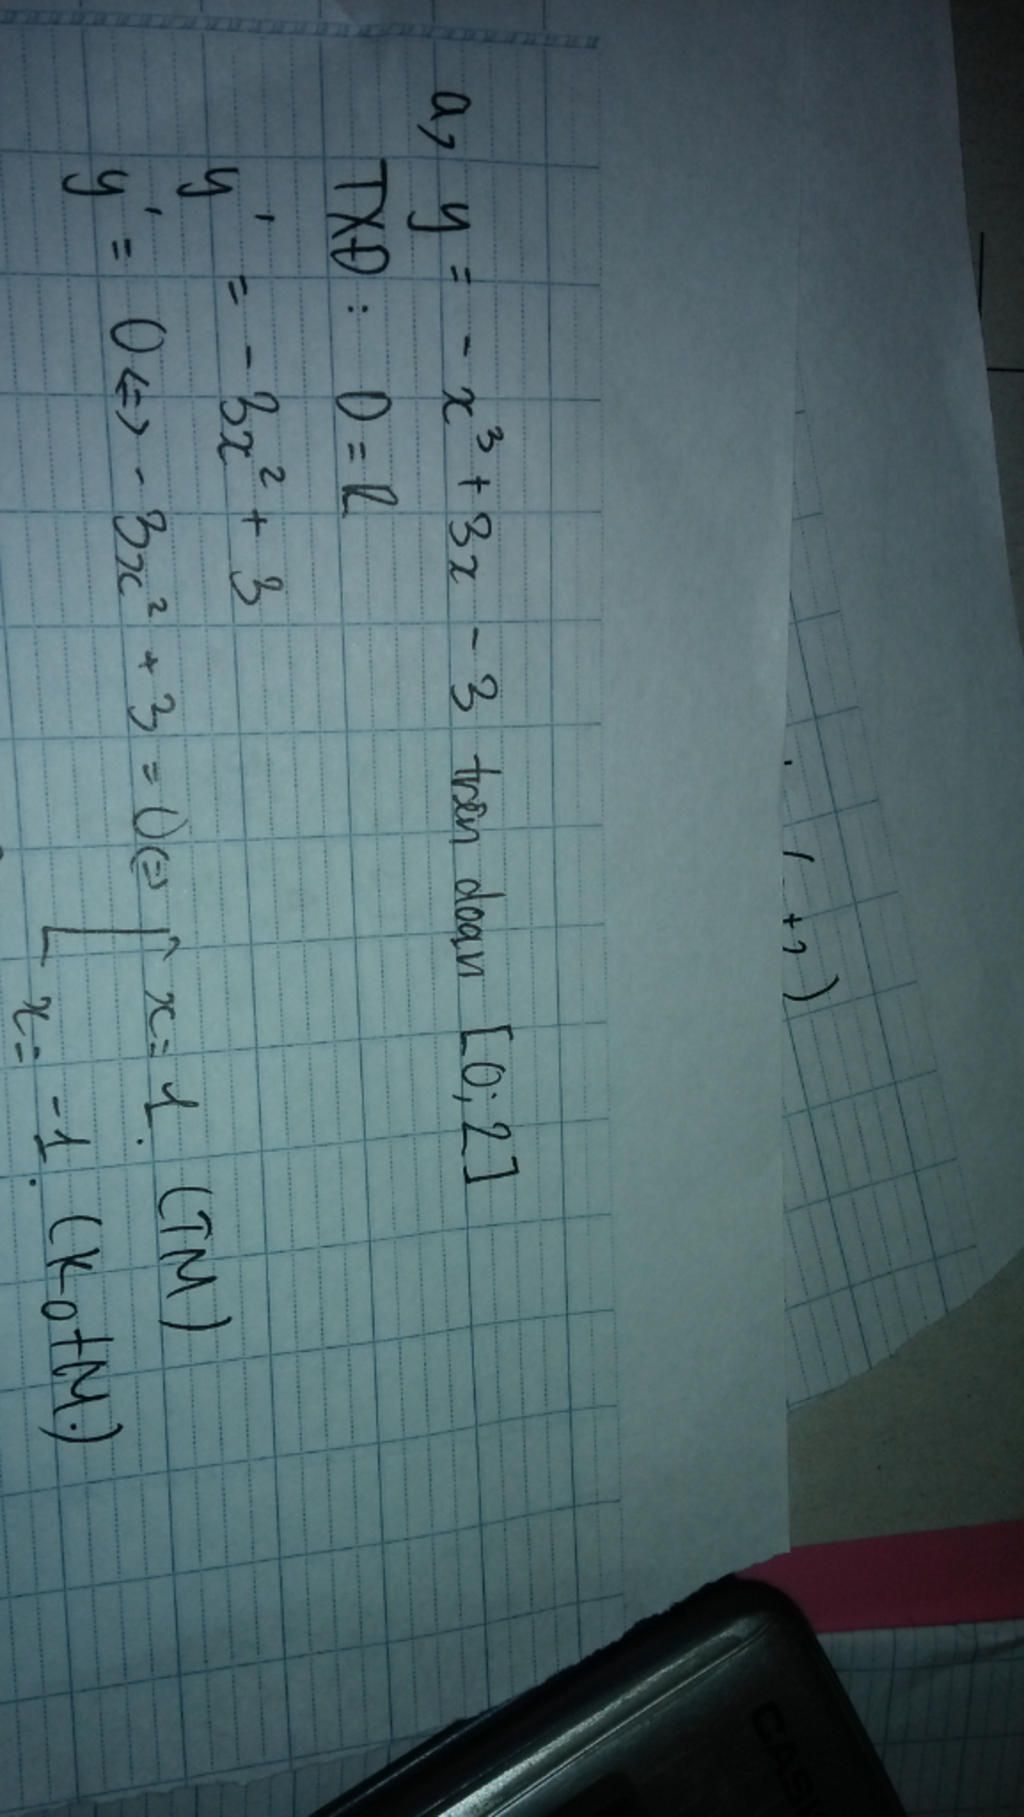 a, y = - x³ + 3x - 3 trên đoạn [0; 2]
TXĐ : D = R
y' = - 3x² + 3
y' = 0 <=> - 3x² + 3 = 0 <=> [ x = 1. (TM)
x = -1. (KoTM.)
+2)
CASI